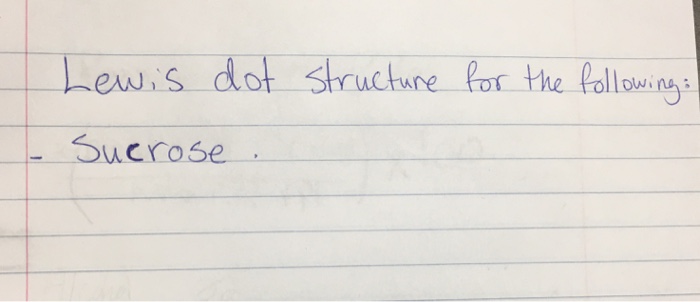 Lewis dot structure for the following:
- Sucrose.